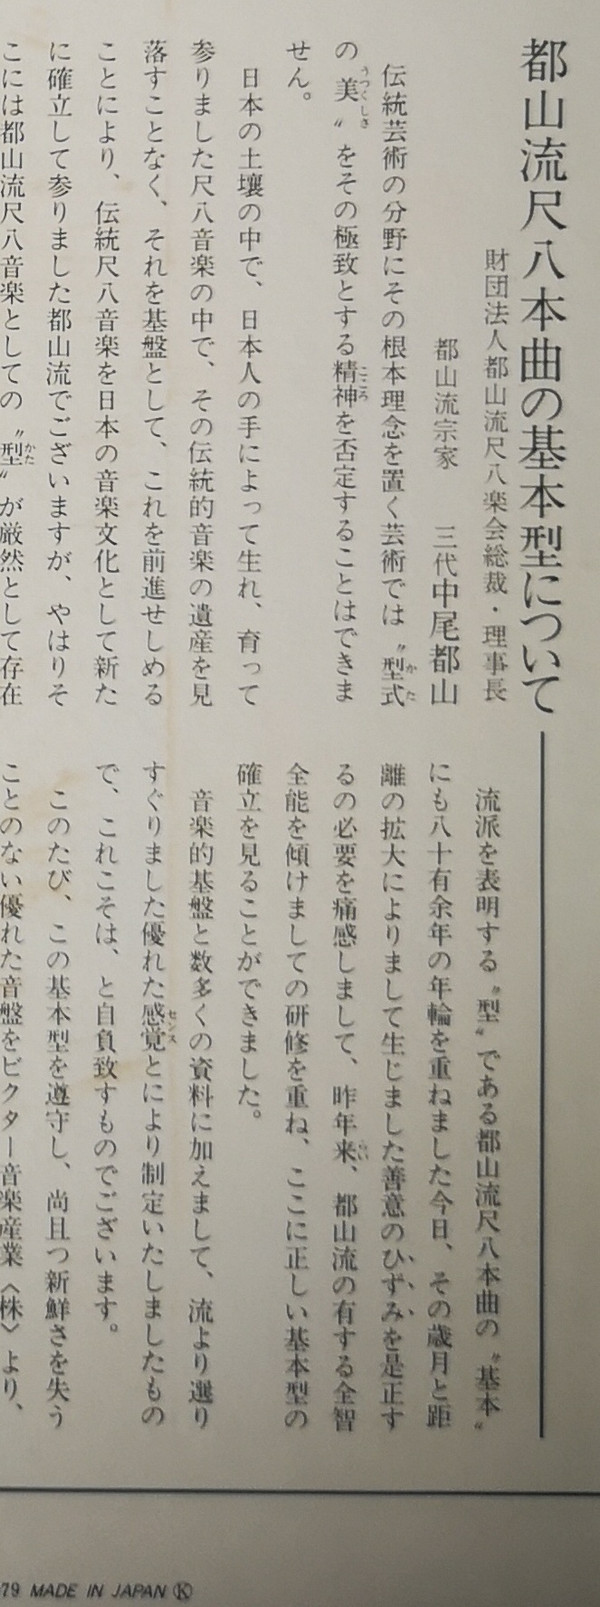 都山流尺八本曲の基本型について
財団法人都山流尺八楽会総裁・理事長
都山流宗家　三代中尾都山
伝統芸術の分野にその根本理念を置く芸術では〝型式
の〝美〟をその極致とする精神を否定することはできま
せん。
日本の土壌の中で、日本人の手によって生れ、育って
参りました尺八音楽の中で、その伝統的音楽の遺産を見
落すことなく、それを基盤として、これを前進せしめる
ことにより、伝統尺八音楽を日本の音楽文化として新た
に確立して参りました都山流でございますが、やはりそ
こには都山流尺八音楽としての〝型〟が厳然として存在
流派を表明する〝型〟である都山流尺八本曲の〝基本〟
にも八十有余年の年輪を重ねました今日、その歳月と距
離の拡大によりまして生じました善意のひずみを是正す
るの必要を痛感しまして、昨年来、都山流の有する全智
全能を傾けましての研修を重ね、ここに正しい基本型の
確立を見ることができました。
音楽的基盤と数多くの資料に加えまして、流より選り
すぐりました優れた感覚とにより制定いたしましたもの
で、これこそは、と自負致すものでございます。
このたび、この基本型を遵守し、尚且つ新鮮さを失う
ことのない優れた音盤をビクター音楽産業〈株〉より、
79 MADE IN JAPAN Ⓚ